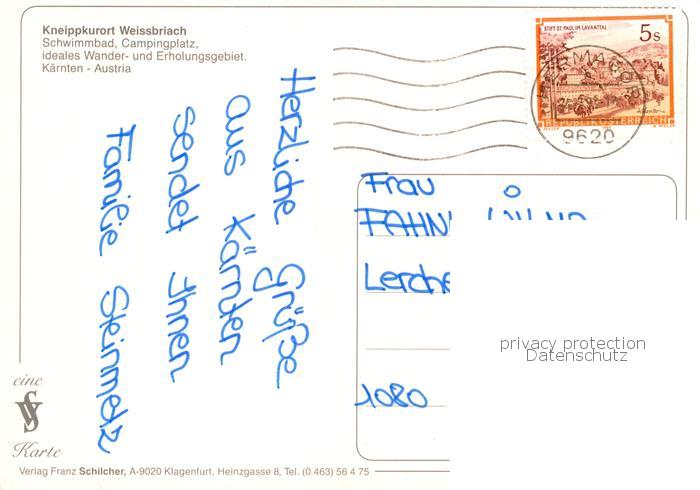 Kneippkurort Weissbriach
Schwimmbad, Campingplatz,
ideales Wander- und Erholungsgebiet.
Kärnten - Austria
STIFT ST. PAUL IM LAVANTTAL
5s
REPUBLIK ÖSTERREICH
9620
Herzliche Grüße
aus Kärnten
sendet Ihnen
Familie Steinmetz
Frau
Lerche
1080
privacy protection
Datenschutz
eine
Karte
Verlag Franz Schilcher, A-9020 Klagenfurt, Heinzgasse 8, Tel. (0 463) 56 4 75